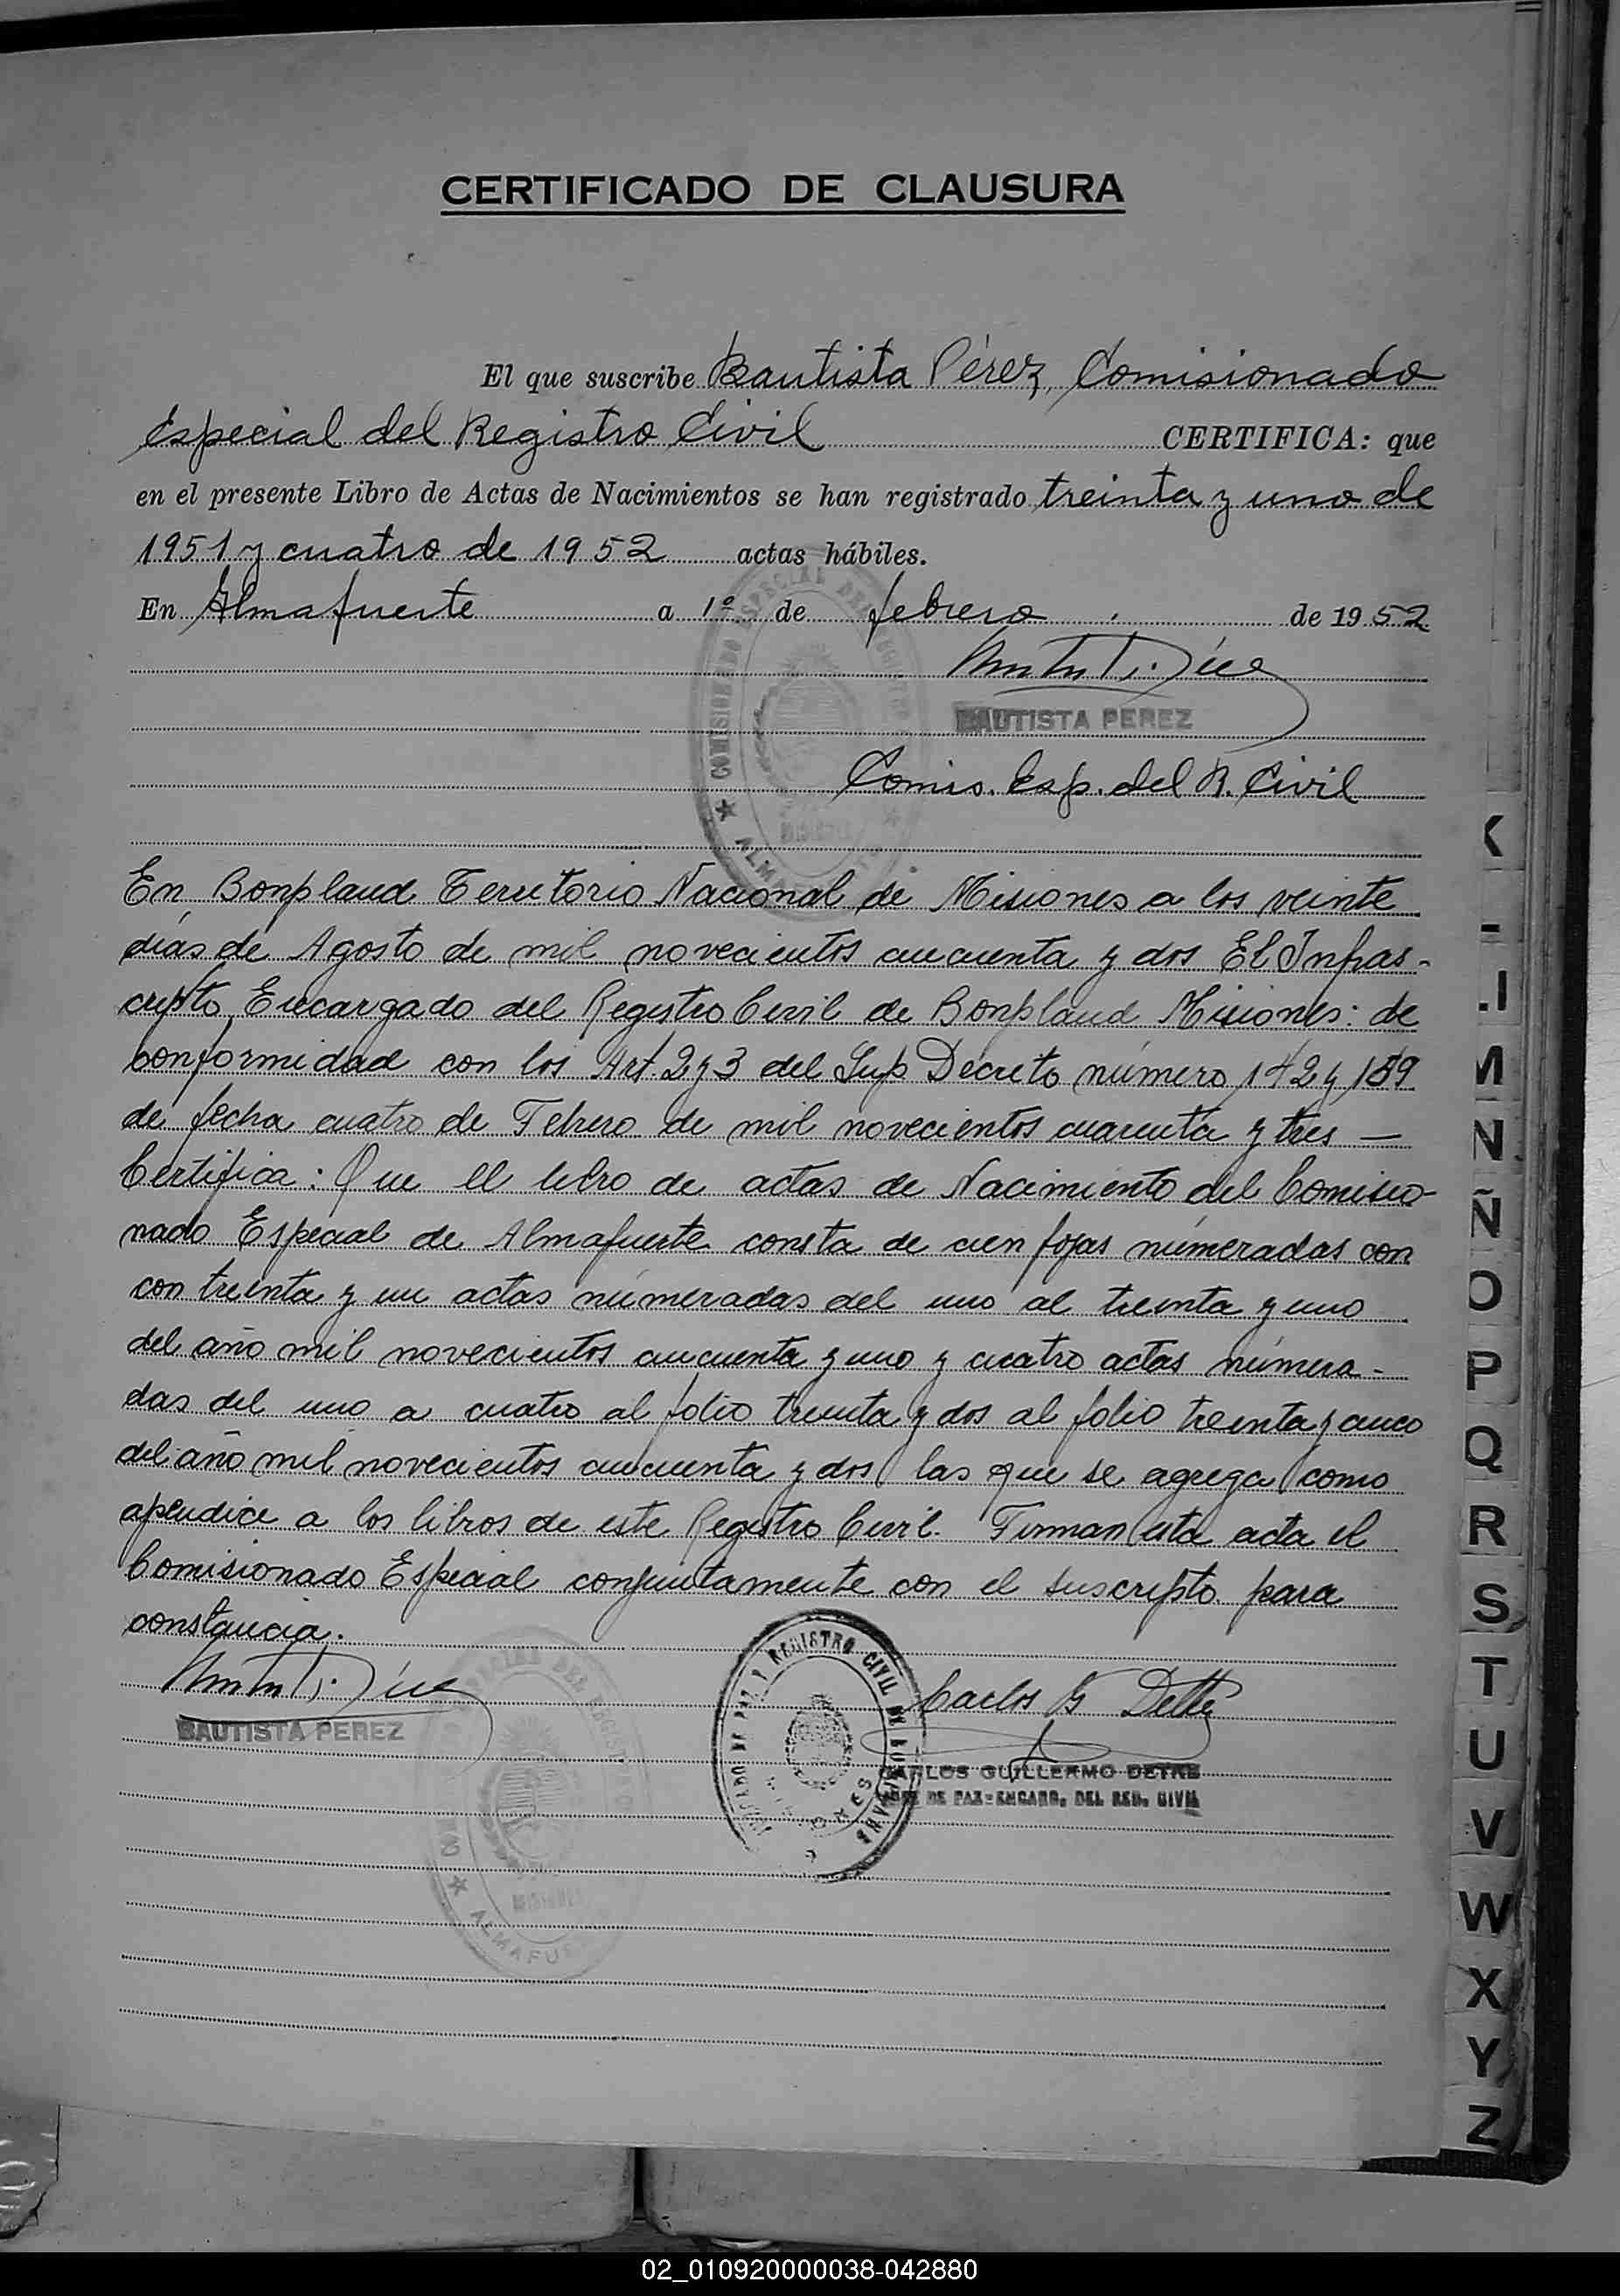 CERTIFICADO DE CLAUSURA
El que suscribe Bautista Pérez, Comisionado
Especial del Registro Civil CERTIFICA: que
en el presente Libro de Actas de Nacimientos se han registrado treinta y uno de
1951 y cuatro de 1952 actas hábiles.
En Almafuerte a 1º de febrero de 1952
BAUTISTA PEREZ
Comis. Esp. del R. Civil
En Bonpland Territorio Nacional de Misiones a los veinte
días de Agosto de mil novecientos cincuenta y dos El Infras-
cripto, Encargado del Registro Civil de Bonpland Misiones: de
conformidad con los Art. 2 y 3 del Sup Decreto número 142 y 159
de fecha cuatro de Febrero de mil novecientos cuarenta y tres —
Certifica: Que el libro de actas de Nacimiento del Comisio-
nado Especial de Almafuerte consta de cien fojas númeradas con
con treinta y un actas númeradas del uno al treinta y uno
del año mil novecientos cincuenta y uno y cuatro actas númera-
das del uno a cuatro al folio treinta y dos al folio treinta y cinco
del año mil novecientos cincuenta y dos las que se agrega como
apendice a los libros de este Registro Civil. Firman esta acta el
Comisionado Especial conjuntamente con el suscripto para
constancia.
BAUTISTA PEREZ
Carlos G Detke
CARLOS GUILLERMO DETKE
JUEZ DE PAZ-ENCARG. DEL REG. CIVIL
COMISIONADO ESPECIAL DEL REGISTRO
MISIONES
ALMAFUERTE
JUZGADO DE PAZ Y REGISTRO CIVIL DE BONPLAND
MISIONES
K
M
N
Ñ
O
P
Q
R
S
T
U
V
W
X
Y
Z
02_010920000038-042880